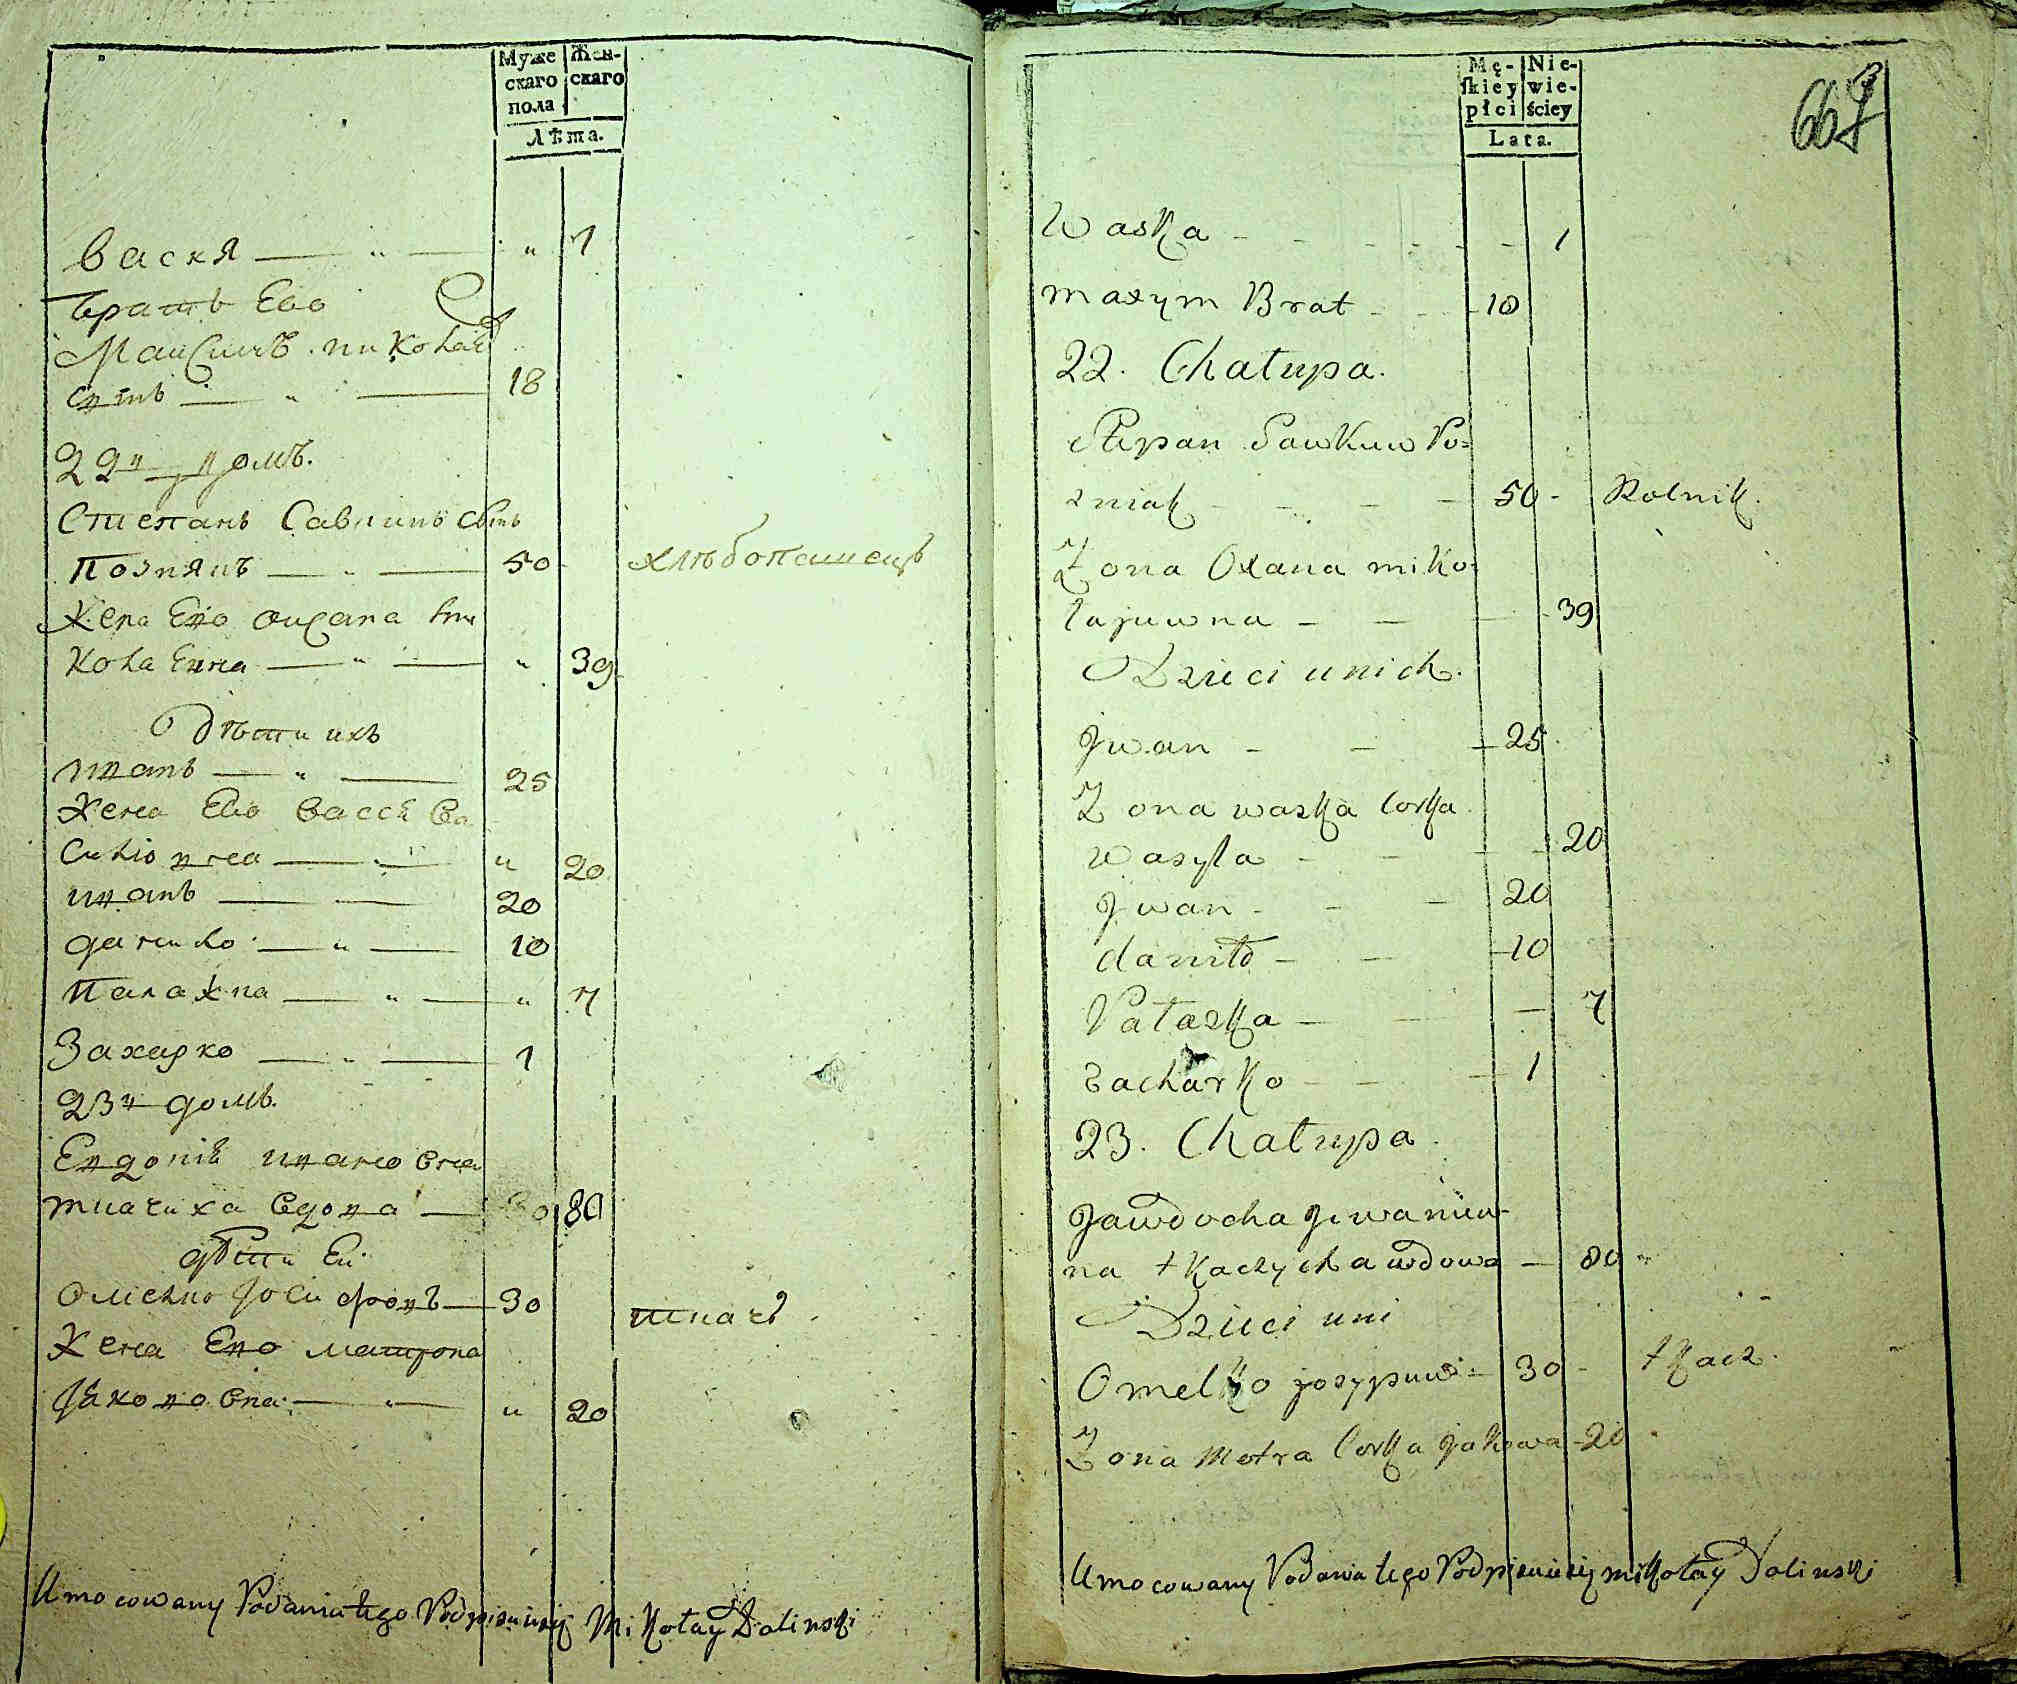 Муже
скаго
пола
Жен-
скаго
Лѣта.
Васка — " — " 1
Братъ Ево
Максимъ николаε
сынъ — " — 18
22й домъ.
Степанъ Савкинъ сынъ
Познякъ — " — 50 хлѣбопашецъ
Жена Ево Оксана Ни
колаевна — " — " 39
Дѣти ихъ
иванъ — " — 25
Жена Ево Васка Ва
силювна — " — " 20
иванъ — — 20
данило — " — 10
Палажка — " — " 7
Захарко — " — 1
23й домъ.
Евдокия ивановна
ткачиха вдова — 80
дѣти Ей
Омелко Іосифовъ — 30 ткачъ
Жена Ево матрона
Якововна — " — " 20
Umocowany Podania tego Podpisuię Mikołay Dolinski
Mę-
skiey
płci
Nie-
wie-
ściey
Lata.
667
Waska - - - - - 1
maxym Brat - - - 10
22. Chałupa.
Stepan Sawkuw Po=
zniak - - - - 50 - Rolnik.
Zona Oxana miko=
łajuwna - - - 39
Dzieci unich.
Jwan - - - 25
Zona waska Corka
wasyla - - - 20
Jwan - - - 20
daniło - - - 10
Pałaszka - - - 7
Zacharko - - - 1
23. Chałupa.
Jawdocha Jwaniuw-
na tkaczycha wdowa - 80
Dzieci uni
Omelko josypuw - 30 - tkacz.
Zona Motra Corka Jakowa - 20
Umocowany Podania tego Podpisuię mikołay Dolinski